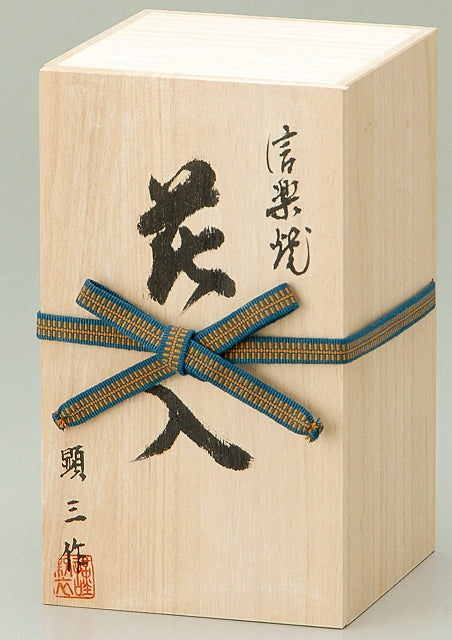 信楽焼
花入
顕三作